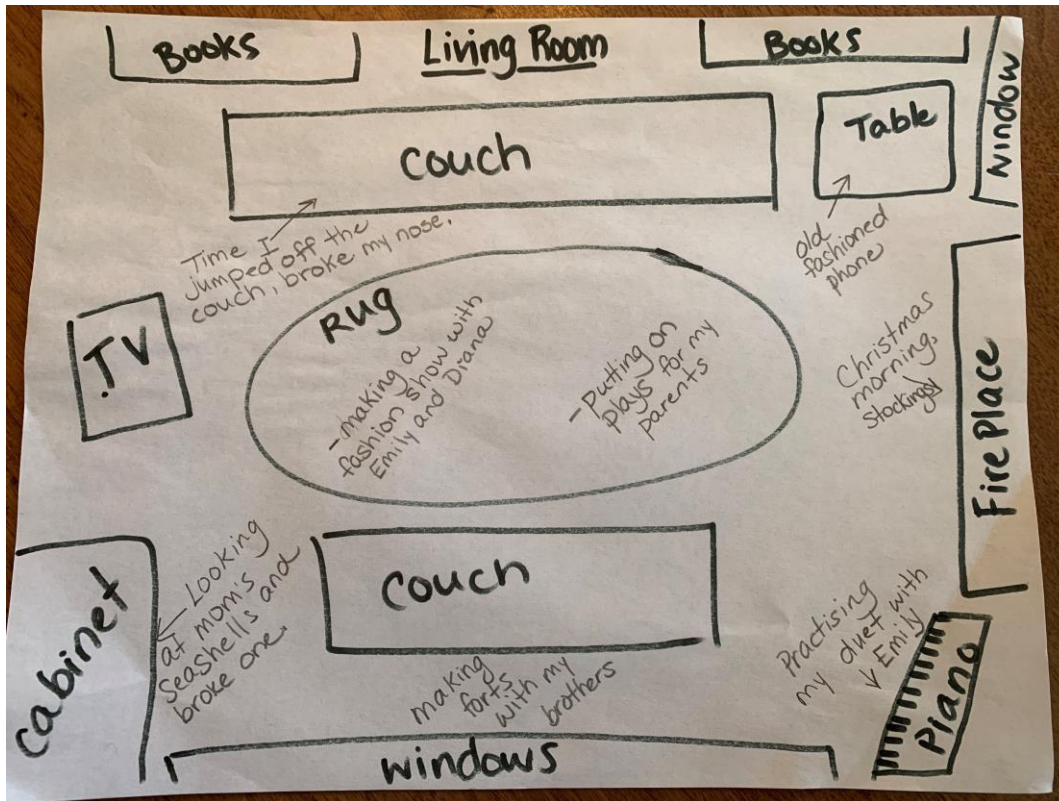 Books
Living Room
Books
Window
Couch
Table
Time I
jumped off the
couch, broke my nose.
old
fashioned
phone
TV
Rug
-making a
fashion show with
Emily and Diana
-Putting on
plays for my
parents
Christmas
morning,
stockings
Fire Place
Cabinet
Looking
at mom's
seashells and
broke one.
Couch
making
forts
with my
brothers
Practising
my duet with
Emily
Piano
Windows